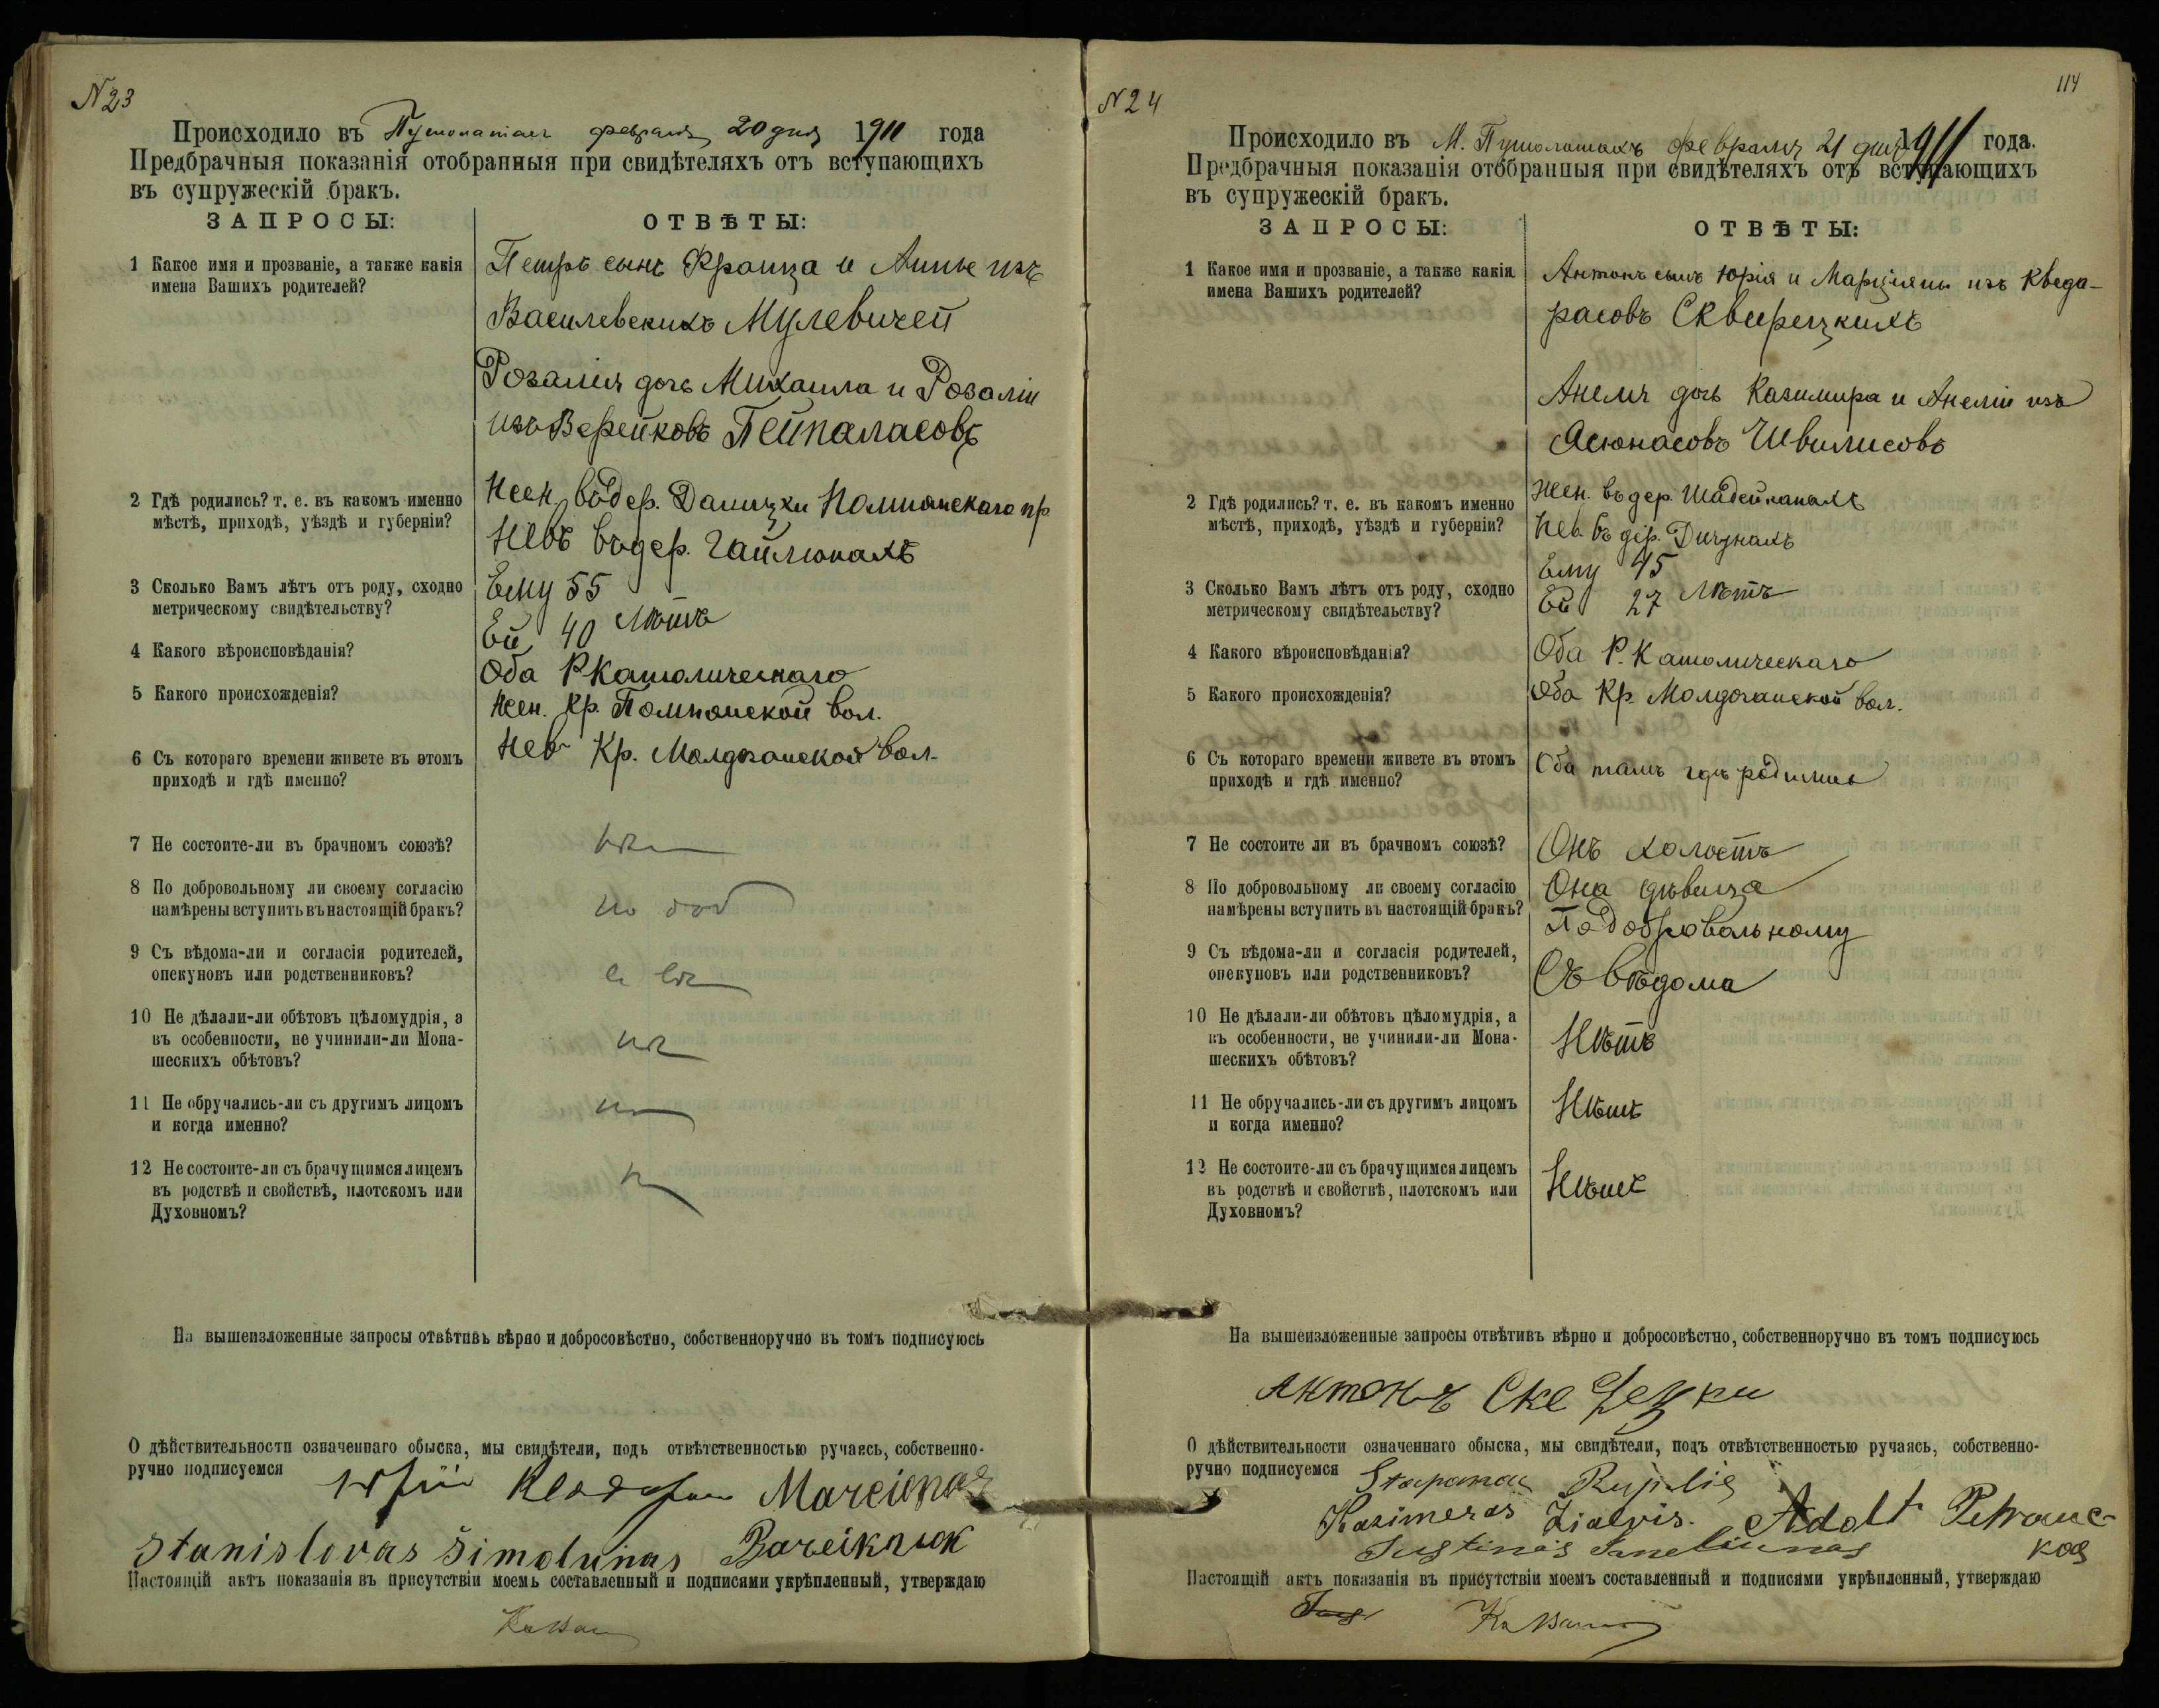 N23
Происходило въ февраля 20 дня 1911 года
Предбрачныя показанія отобранныя при свидѣтеляхъ отъ вступающихъ
въ супружескій бракъ.
ЗАПРОСЫ: ОТВѢТЫ:
1 Какое имя и прозваніе, а также какія
имена Вашихъ родителей?
Петръ сынъ Франца и Анны изъ
Василевскихъ Мулевичей
Розалія дочь Михаила и Розаліи
изъ Верейковъ Пейпаласовъ
2 Гдѣ родились? т. е. въ какомъ именно
мѣстѣ, приходѣ, уѣздѣ и губерніи?
Жен. въ дер. пр
Нев въ дер. Гайлюнахъ
3 Сколько Вамъ лѣтъ отъ роду, сходно
метрическому свидѣтельству?
Ему 55
Ей 40 лѣтъ
4 Какого вѣроисповѣданія?
Оба Р Католическаго
5 Какого происхожденія?
Жен. Кр. Помпянской вол.
Нев Кр. вол.
6 Съ котораго времени живете въ этомъ
приходѣ и гдѣ именно?
7 Не состоите-ли въ брачномъ союзѣ?
8 По добровольному ли своему согласію
намѣрены вступить въ настоящій бракъ?
по доб
9 Съ вѣдома-ли и согласія родителей,
опекуновъ или родственниковъ?
10 Не дѣлали-ли обѣтовъ цѣломудрія, а
въ особенности, не учинили-ли Мона-
шескихъ обѣтовъ?
11 Не обручались-ли съ другимъ лицомъ
и когда именно?
12 Не состоите-ли съ брачущимся лицемъ
въ родствѣ и свойствѣ, плотскомъ или
Духовномъ?
На вышеизложенные запросы отвѣтивъ вѣрно и добросовѣстно, собственноручно въ томъ подписуюсь
О дѣйствительности означеннаго обыска, мы свидѣтели, подъ отвѣтственностью ручаясь, собственно-
ручно подписуемся
Stanislovas Šimolunas
Настоящій актъ показанія въ присутствіи моемъ составленный и подписями укрѣпленный, утверждаю
N24
114
Происходило въ М. Пушолатахъ февраля 21 дня 1911 года.
Предбрачныя показанія отобранныя при свидѣтеляхъ отъ вступающихъ
въ супружескій бракъ.
ЗАПРОСЫ: ОТВѢТЫ:
1 Какое имя и прозваніе, а также какія
имена Вашихъ родителей?
Антонъ сынъ Юрія и Марціяны изъ Кведа-
расовъ Сквирецкихъ
Анеля дочь Казимира и Анеліи изъ
Асюнасовъ Швилисовъ
2 Гдѣ родились? т. е. въ какомъ именно
мѣстѣ, приходѣ, уѣздѣ и губерніи?
Жен. въ дер. Шадейканахъ
Нев. въ дер.
3 Сколько Вамъ лѣтъ отъ роду, сходно
метрическому свидѣтельству?
Ему 45
Ей 27 лѣтъ
4 Какого вѣроисповѣданія?
Оба Р. Католическаго
5 Какого происхожденія?
Оба Кр. вол.
6 Съ котораго времени живете въ этомъ
приходѣ и гдѣ именно?
Оба тамъ гдѣ родились
7 Не состоите ли въ брачномъ союзѣ?
Онъ холостъ
Она дѣвица
8 По добровольному ли своему согласію
намѣрены вступить въ настоящій бракъ?
По добровольному
9 Съ вѣдома-ли и согласія родителей,
опекуновъ или родственниковъ?
Съ вѣдома
10 Не дѣлали-ли обѣтовъ цѣломудрія, а
въ особенности, не учинили-ли Мона-
шескихъ обѣтовъ?
Нѣтъ
11 Не обручались-ли съ другимъ лицомъ
и когда именно?
Нѣтъ
12 Не состоите-ли съ брачущимся лицемъ
въ родствѣ и свойствѣ, плотскомъ или
Духовномъ?
Нѣтъ
На вышеизложенные запросы отвѣтивъ вѣрно и добросовѣстно, собственноручно въ томъ подписуюсь
Антонъ
О дѣйствительности означеннаго обыска, мы свидѣтели, подъ отвѣтственностью ручаясь, собственно-
ручно подписуемся
Kazimeras
Настоящій актъ показанія въ присутствіи моемъ составленный и подписями укрѣпленный, утверждаю